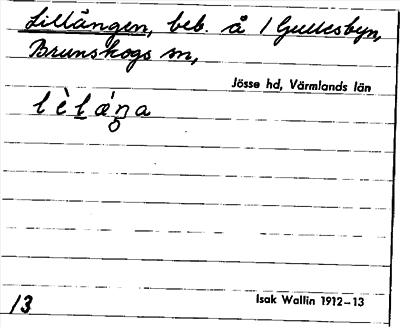 Lillängen, beb. å 1 Gullesbyn,
Brunskogs sn,
Jösse hd, Värmlands län
13
Isak Wallin 1912–13